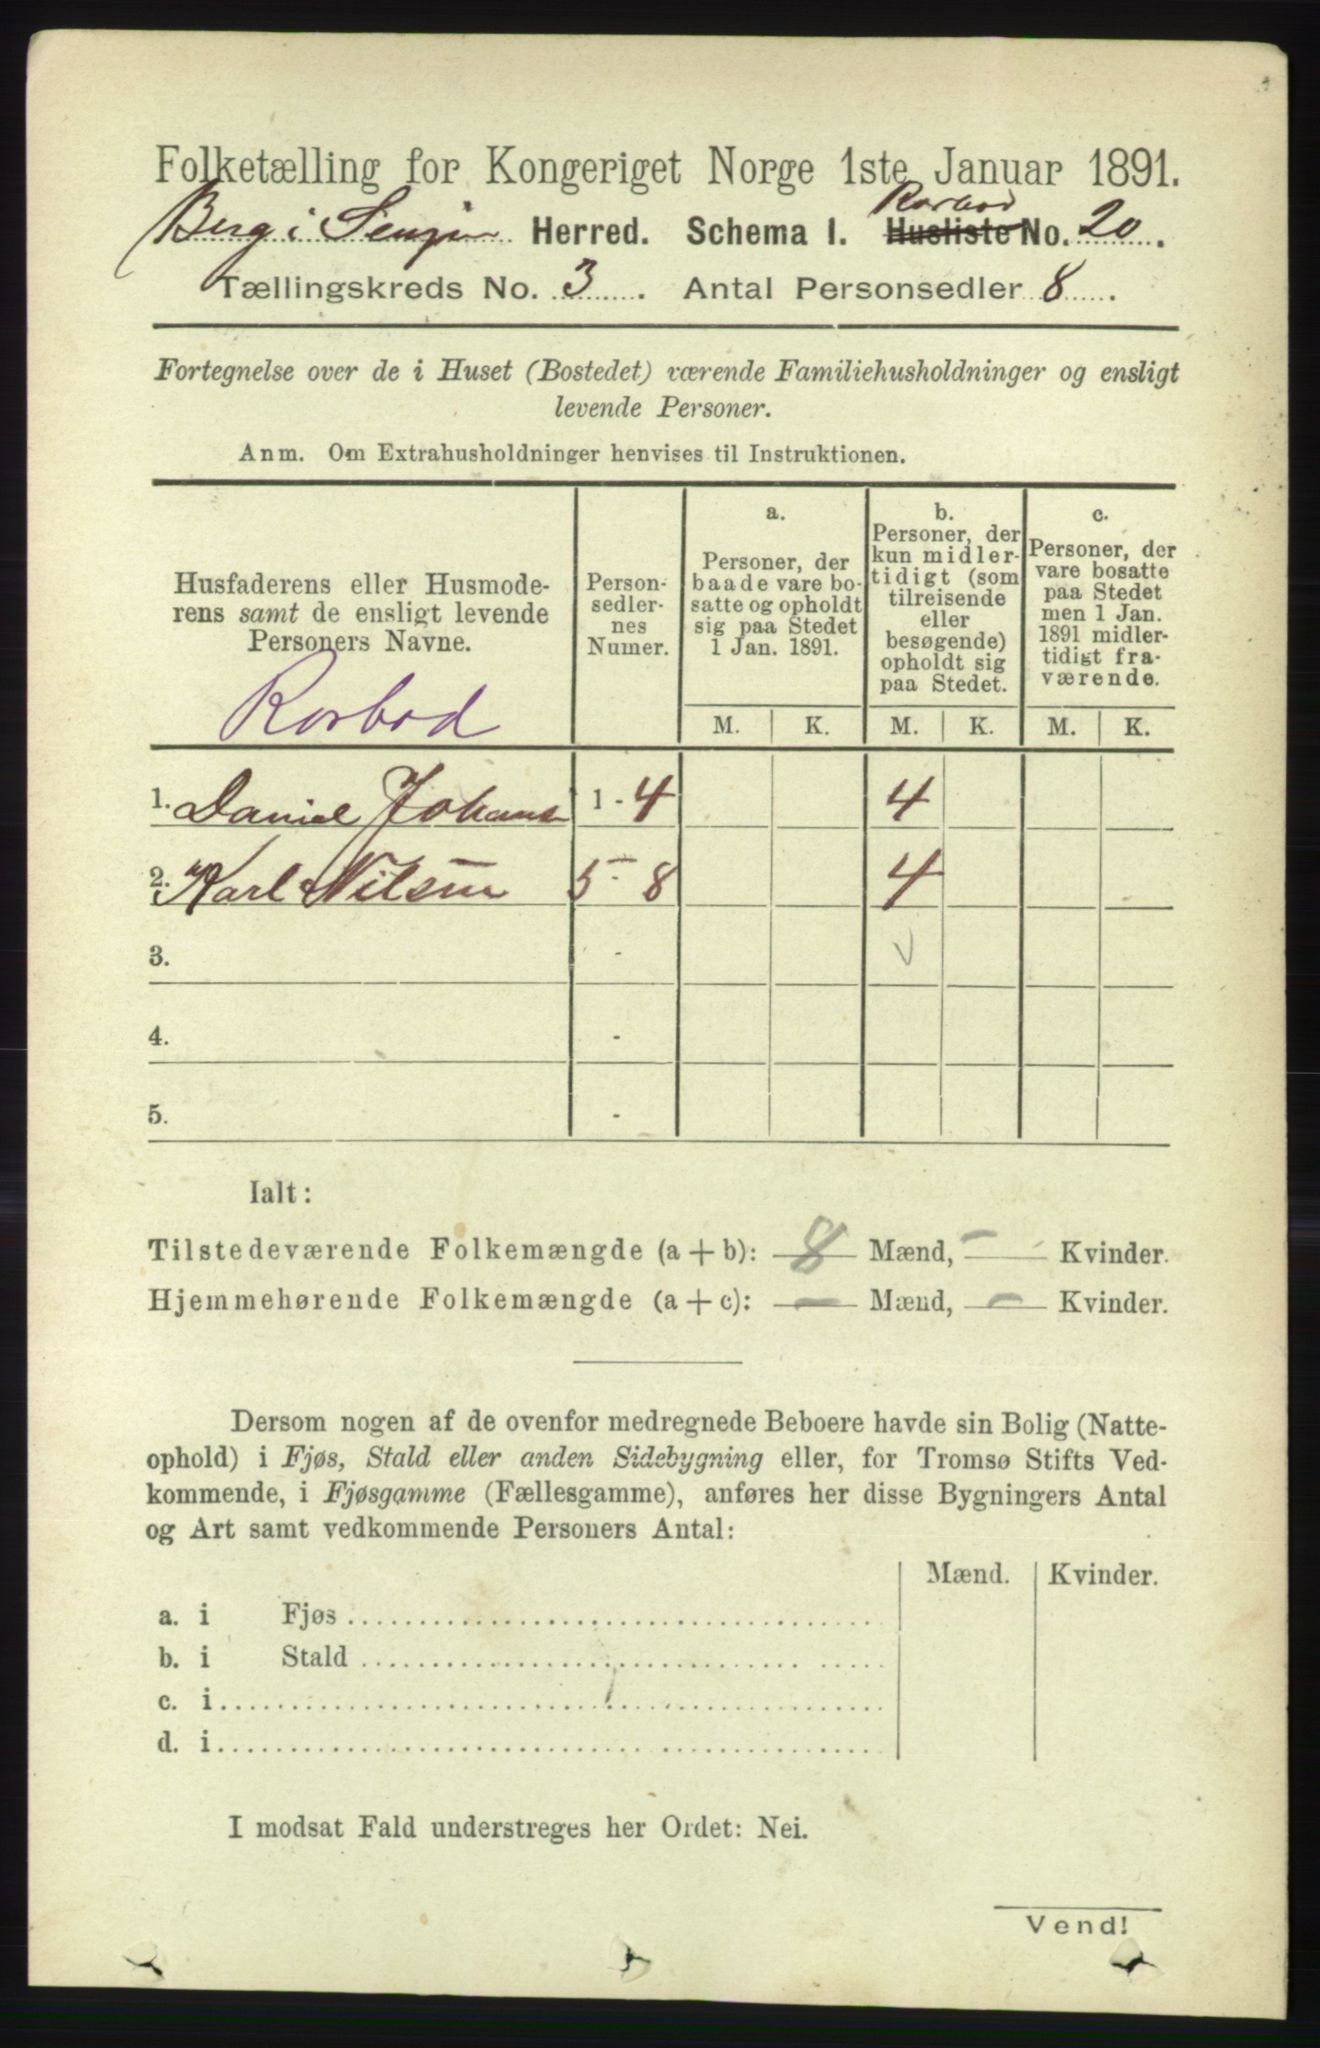 Folketælling for Kongeriget Norge 1ste Januar 1891.
Rorbod
Berg i Senjen Herred. Schema I. Husliste No. 20.
Tællingskreds No. 3. Antal Personsedler 8.
Fortegnelse over de i Huset (Bostedet) værende Familiehusholdninger og ensligt
levende Personer.
Anm. Om Extrahusholdninger henvises til Instruktionen.
Husfaderens eller Husmode-
rens samt de ensligt levende
Personers Navne.
Rorbod
Person-
sedler-
nes
Numer.
a.
Personer, der
baade vare bo-
satte og opholdt
sig paa Stedet
1 Jan. 1891.
b.
Personer, der
kun midler-
tidigt (som
tilreisende
eller
besøgende)
opholdt sig
paa Stedet.
c.
Personer, der
vare bosatte
paa Stedet
men 1 Jan.
1891 midler-
tidigt fra-
værende.
M. K. M. K. M. K.
1. Daniel Johans 1 - 4 4
2. Karl Nilsen 5 - 8 4
3. -
4. -
5. -
Ialt:
Tilstedeværende Folkemængde (a + b): 8 Mænd, - Kvinder.
Hjemmehørende Folkemængde (a + c): - Mænd, - Kvinder.
Dersom nogen af de ovenfor medregnede Beboere havde sin Bolig (Natte-
ophold) i Fjøs, Stald eller anden Sidebygning eller, for Tromsø Stifts Ved-
kommende, i Fjøsgamme (Fællesgamme), anføres her disse Bygningers Antal
og Art samt vedkommende Personers Antal:
Mænd. Kvinder.
a. i Fjøs
b. i Stald
c. i
d. i
I modsat Fald understreges her Ordet: Nei.
Vend!